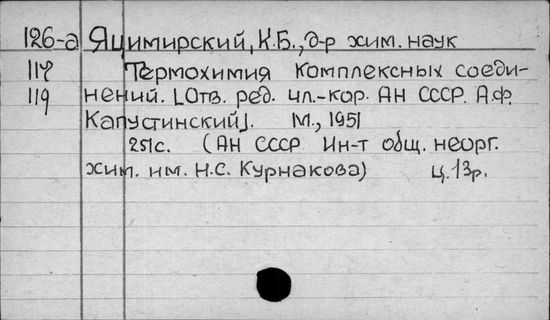 126-а Яцимирский, К.Б., д-р хим. наук
117 Термохимия комплексных соеди-
119 нений. [Отв. ред. чл.-кор. АН СССР. А.Ф.
Капустинский]. М., 1951
251с. (АН СССР Ин-т общ. неорг.
хим. им. Н.С. Курнакова) ц.13р.